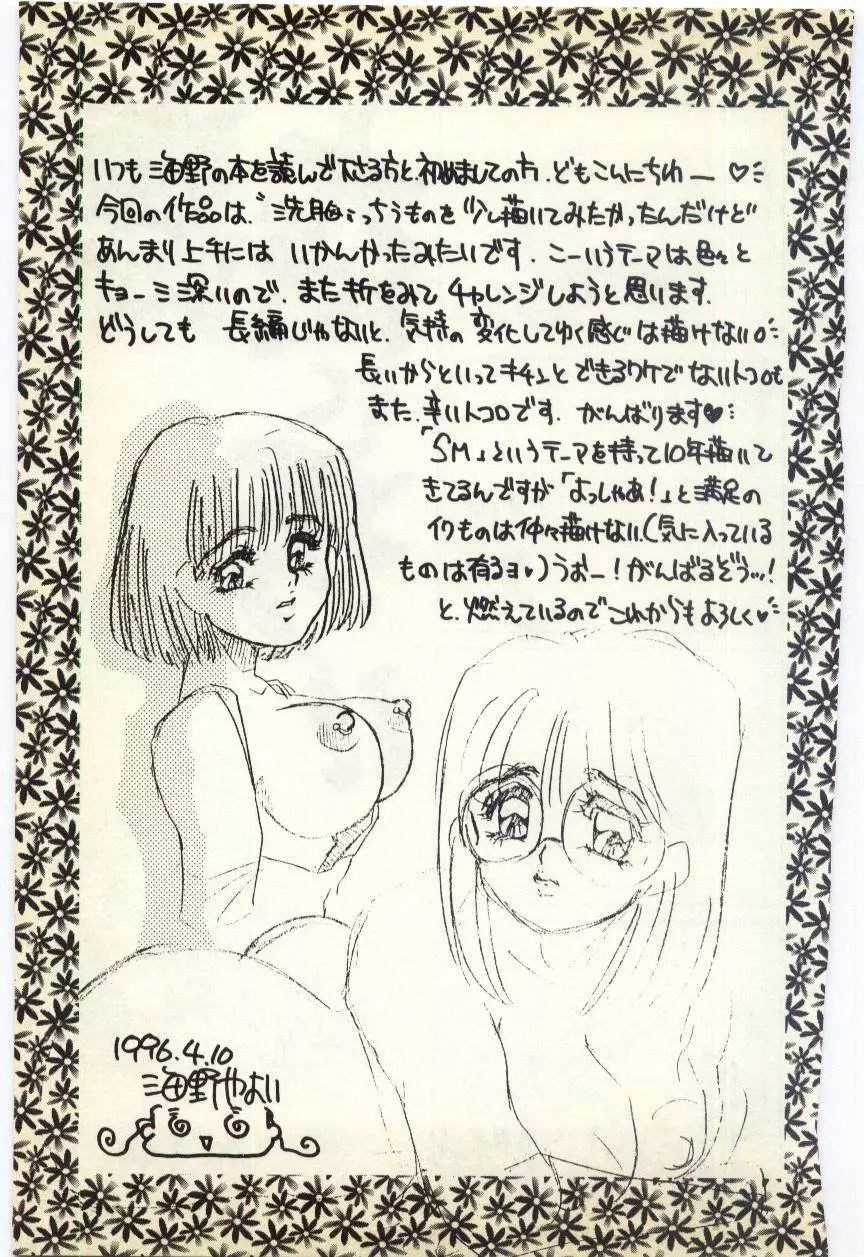 いつも海野の本を読んで下さる方と、初めましての方、どもこんにちわー♡
今回の作品は、"洗脳"っちうものを少し描いてみたかったんだけど
あんまり上手には いかんかったみたいです。こーいうテーマは色々と
キョーミ深いので、また折をみて チャレンジしようと思います。
どうしても 長編じゃないと、気持の変化してゆく感じは描けないし
長いからといってキチンとできるワケでないトコロも
また、辛いトコロです。がんばります♥
「SM」というテーマを持って10年描いて
きてるんですが「よっしゃあ!」と満足の
イクものは仲々描けない。(気に入っている
ものは有るヨ♥)うおー!がんばるぞうッ!
と、燃えているのでこれからもよろしく♥
1996.4.10
海野やよい